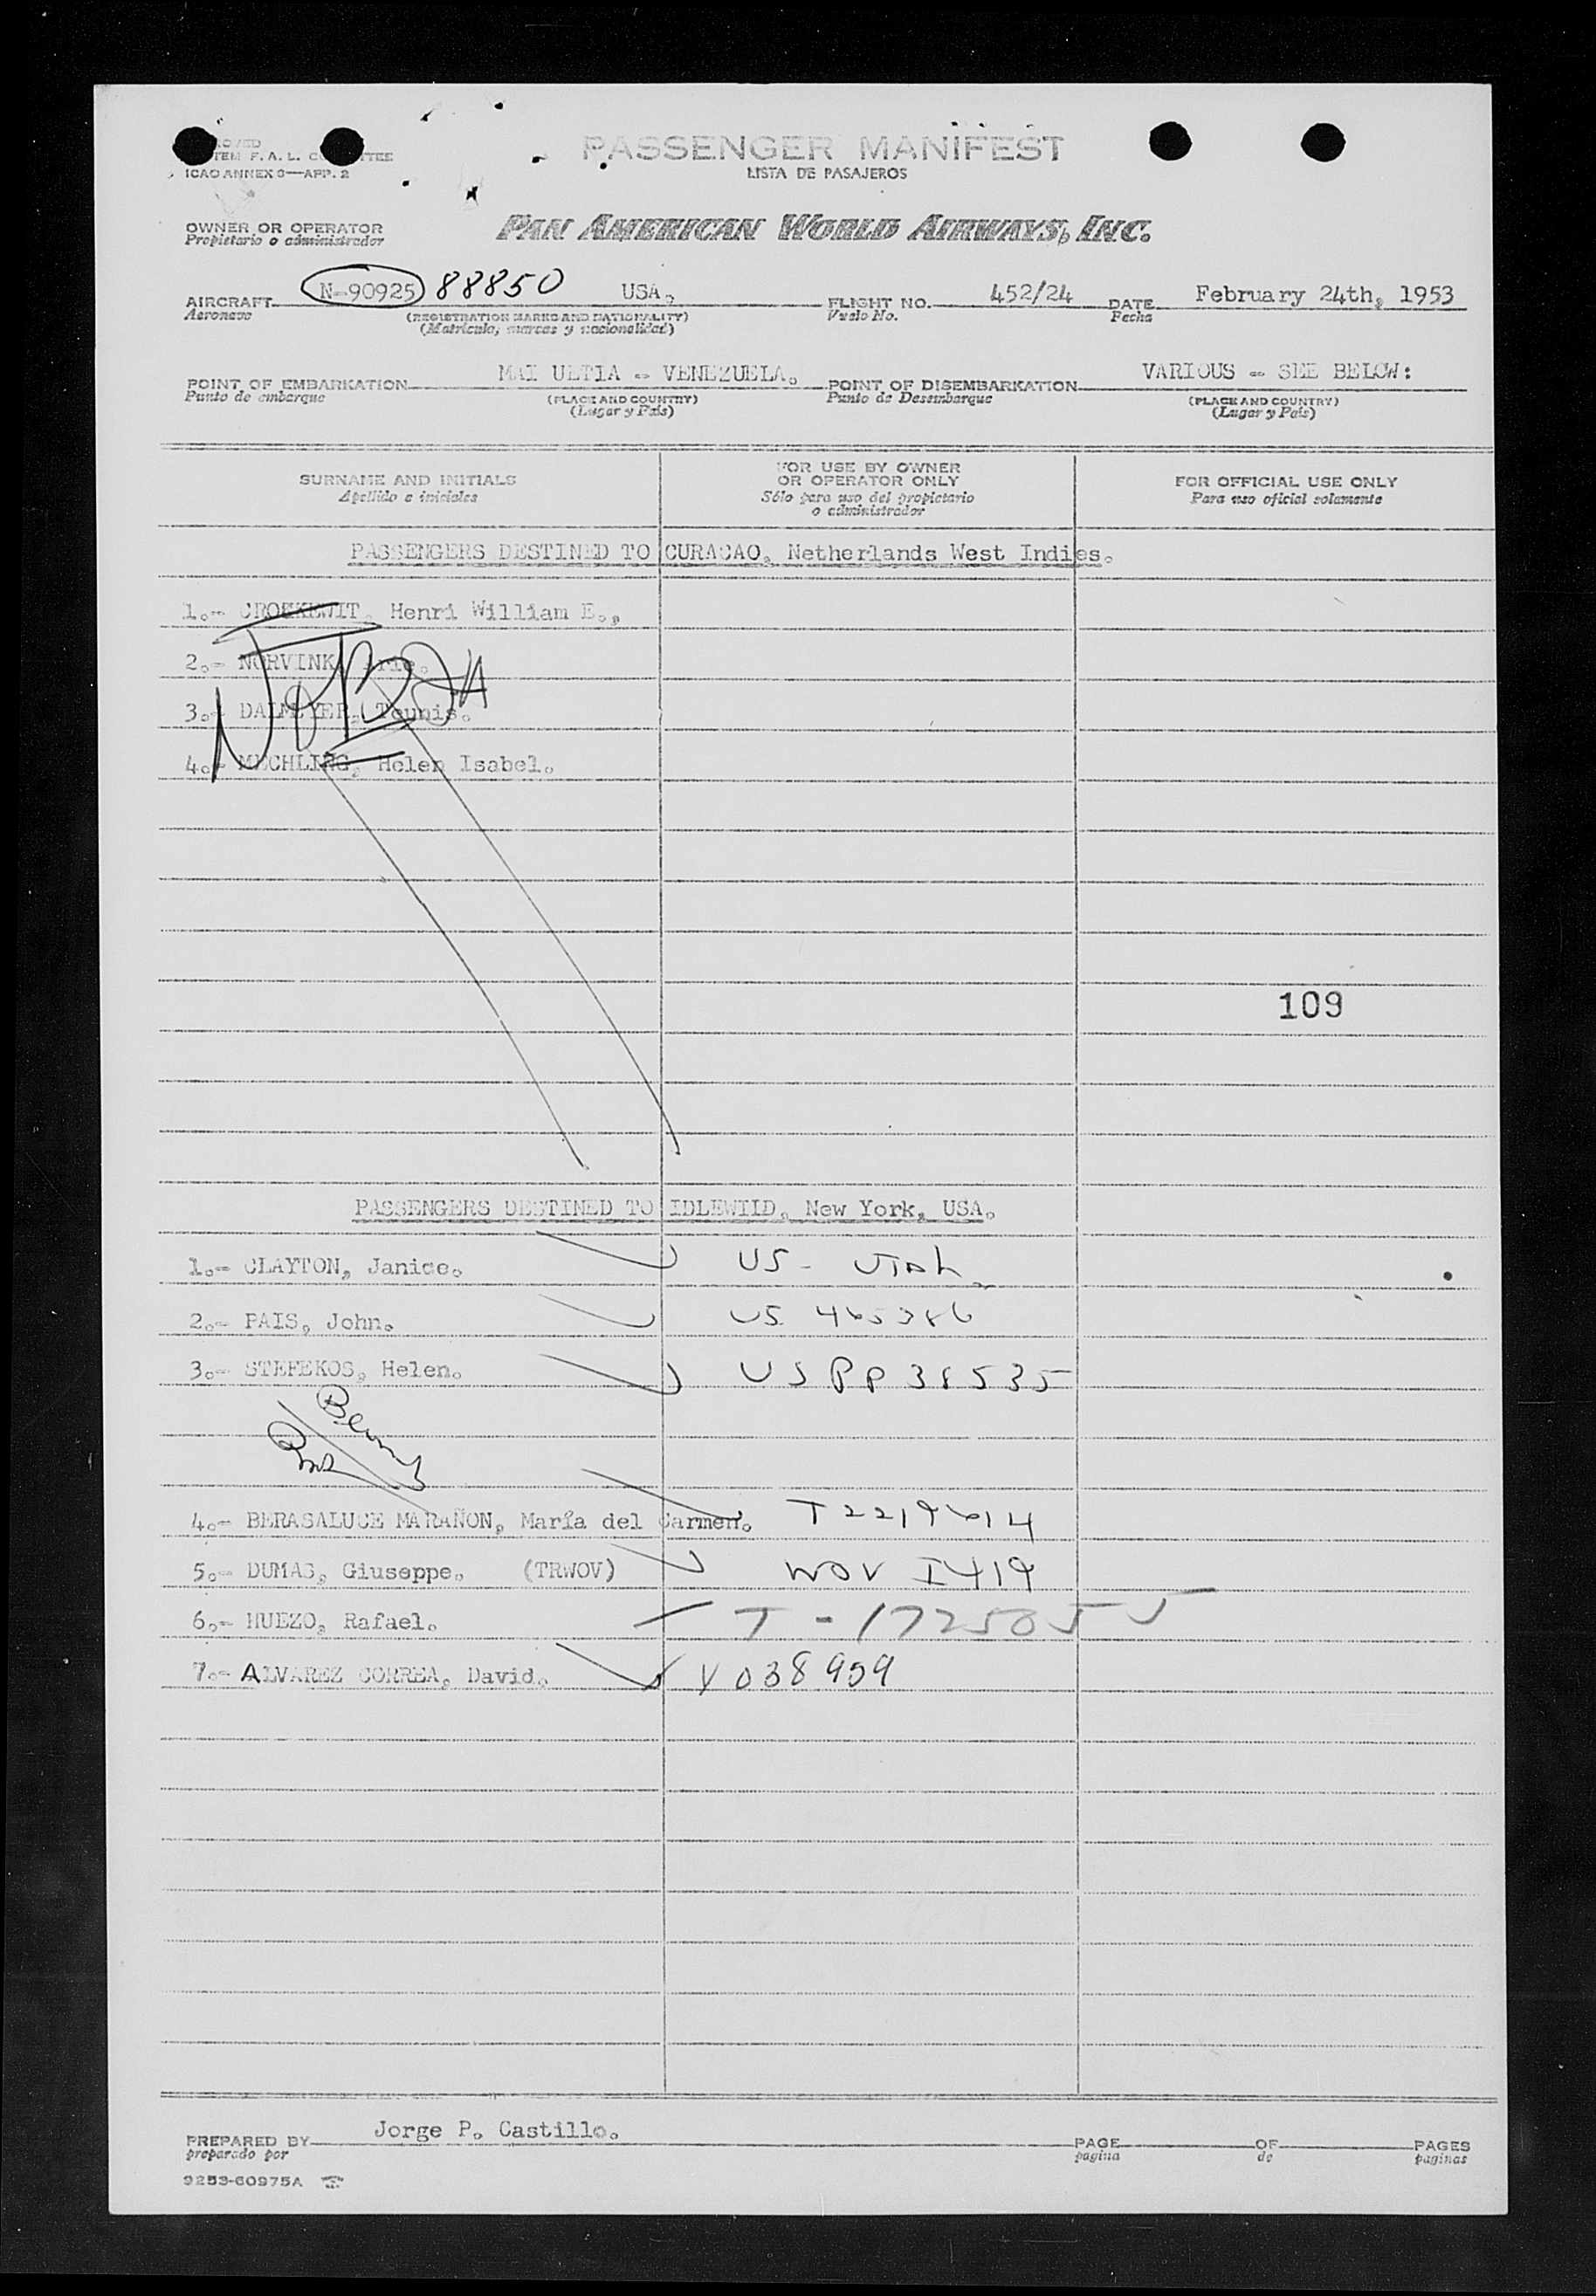 PASSENGER MANIFEST
LISTA DE PASAJEROS
F. A. L.
ICAO ANNEX 9—APP. 2
OWNER OR OPERATOR
Propietario o administrador
PAN AMERICAN WORLD AIRWAYS, INC.
AIRCRAFT N-90925 88850 USA. FLIGHT NO. 452/24 DATE February 24th, 1953
Aeronave (REGISTRATION MARKS AND NATIONALITY) Vuelo No. Fecha
(Matrícula, marcas y nacionalidad)
POINT OF EMBARKATION VENEZUELA. POINT OF DISEMBARKATION VARIOUS - SEE BELOW:
Punto de embarque (PLACE AND COUNTRY) Punto de Desembarque (PLACE AND COUNTRY)
(Lugar y País) (Lugar y País)
SURNAME AND INITIALS FOR USE BY OWNER OR OPERATOR ONLY FOR OFFICIAL USE ONLY
Apellido e iniciales Sólo para uso del propietario o administrador Para uso oficial solamente
PASSENGERS DESTINED TO CURACAO, Netherlands West Indies.
1.- Henri William E.,
2.- NORVINK,
3.- DALMEYER, Teunis.
4.- MECHLING, Helen Isabel.
109
PASSENGERS DESTINED TO IDLEWILD, New York, USA.
1.- CLAYTON, Janice. US - Utah
2.- PAIS, John. US 465386
3.- STEFEKOS, Helen. US PP 38535
4.- BERASALUCE MARAÑON, María del Carmen. T2219614
5.- DUMAS, Giuseppe. (TRWOV) WOV I419
6.- HUEZO, Rafael. T-1725055
7.- ALVAREZ CORREA, David. V 038959
PREPARED BY Jorge P. Castillo. PAGE OF PAGES
preparado por pagina de paginas
9253-60975A